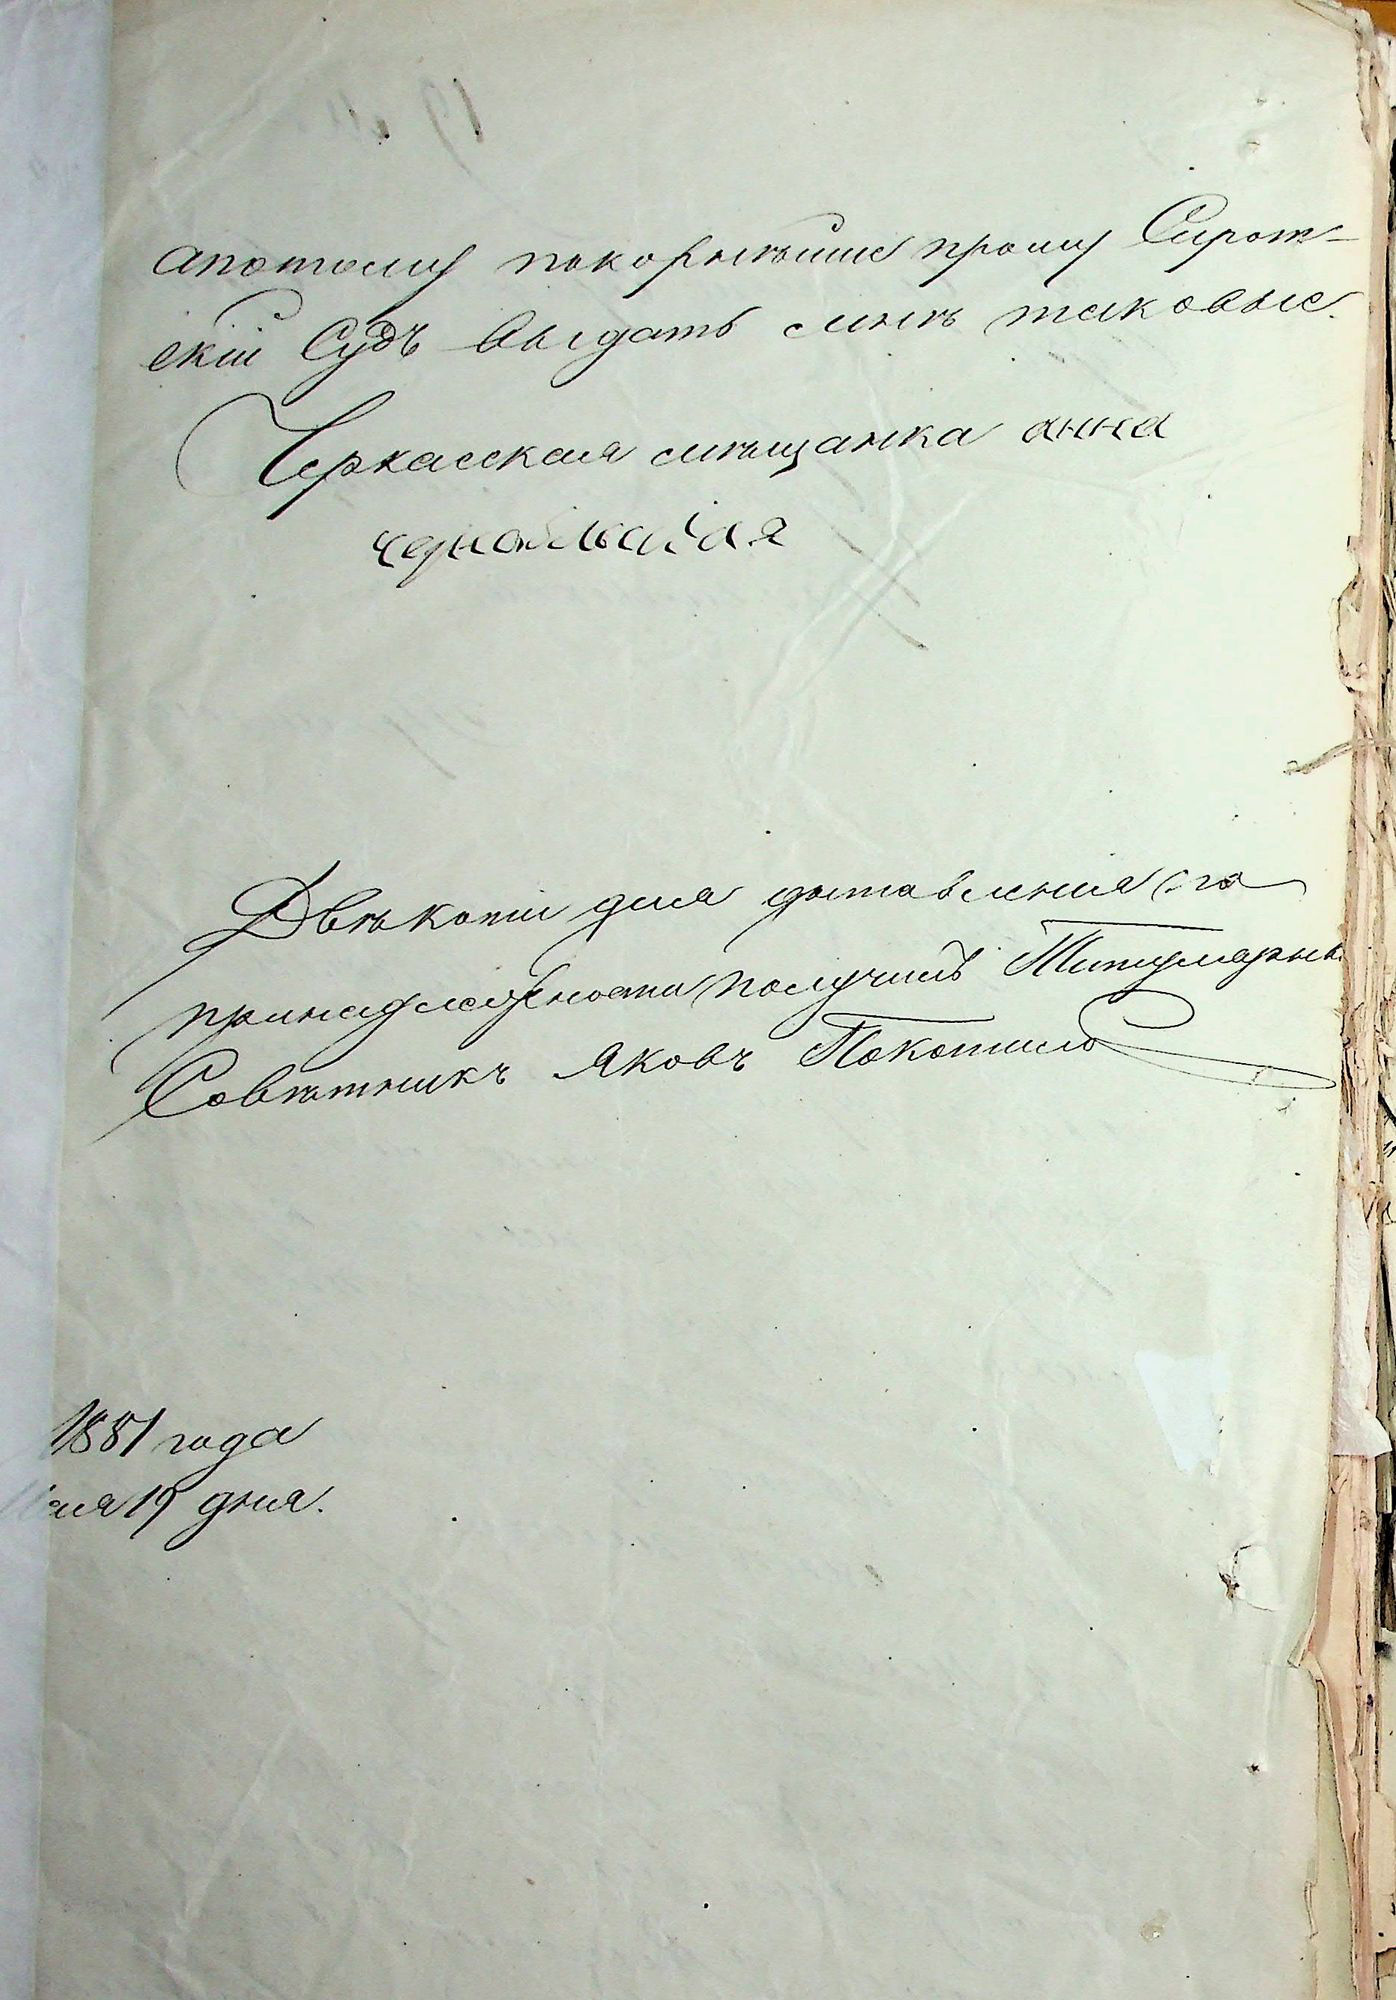 апотому покорнѣйше прошу Сирот-
скій Судъ выдать мнѣ таковые.
Черкасская мѣщанка анна
Двѣ копіи для доставленія по
принадлежности получилъ Титулярны
Совѣтникъ Яковъ Покотило
1881 года
мая 19 дня.